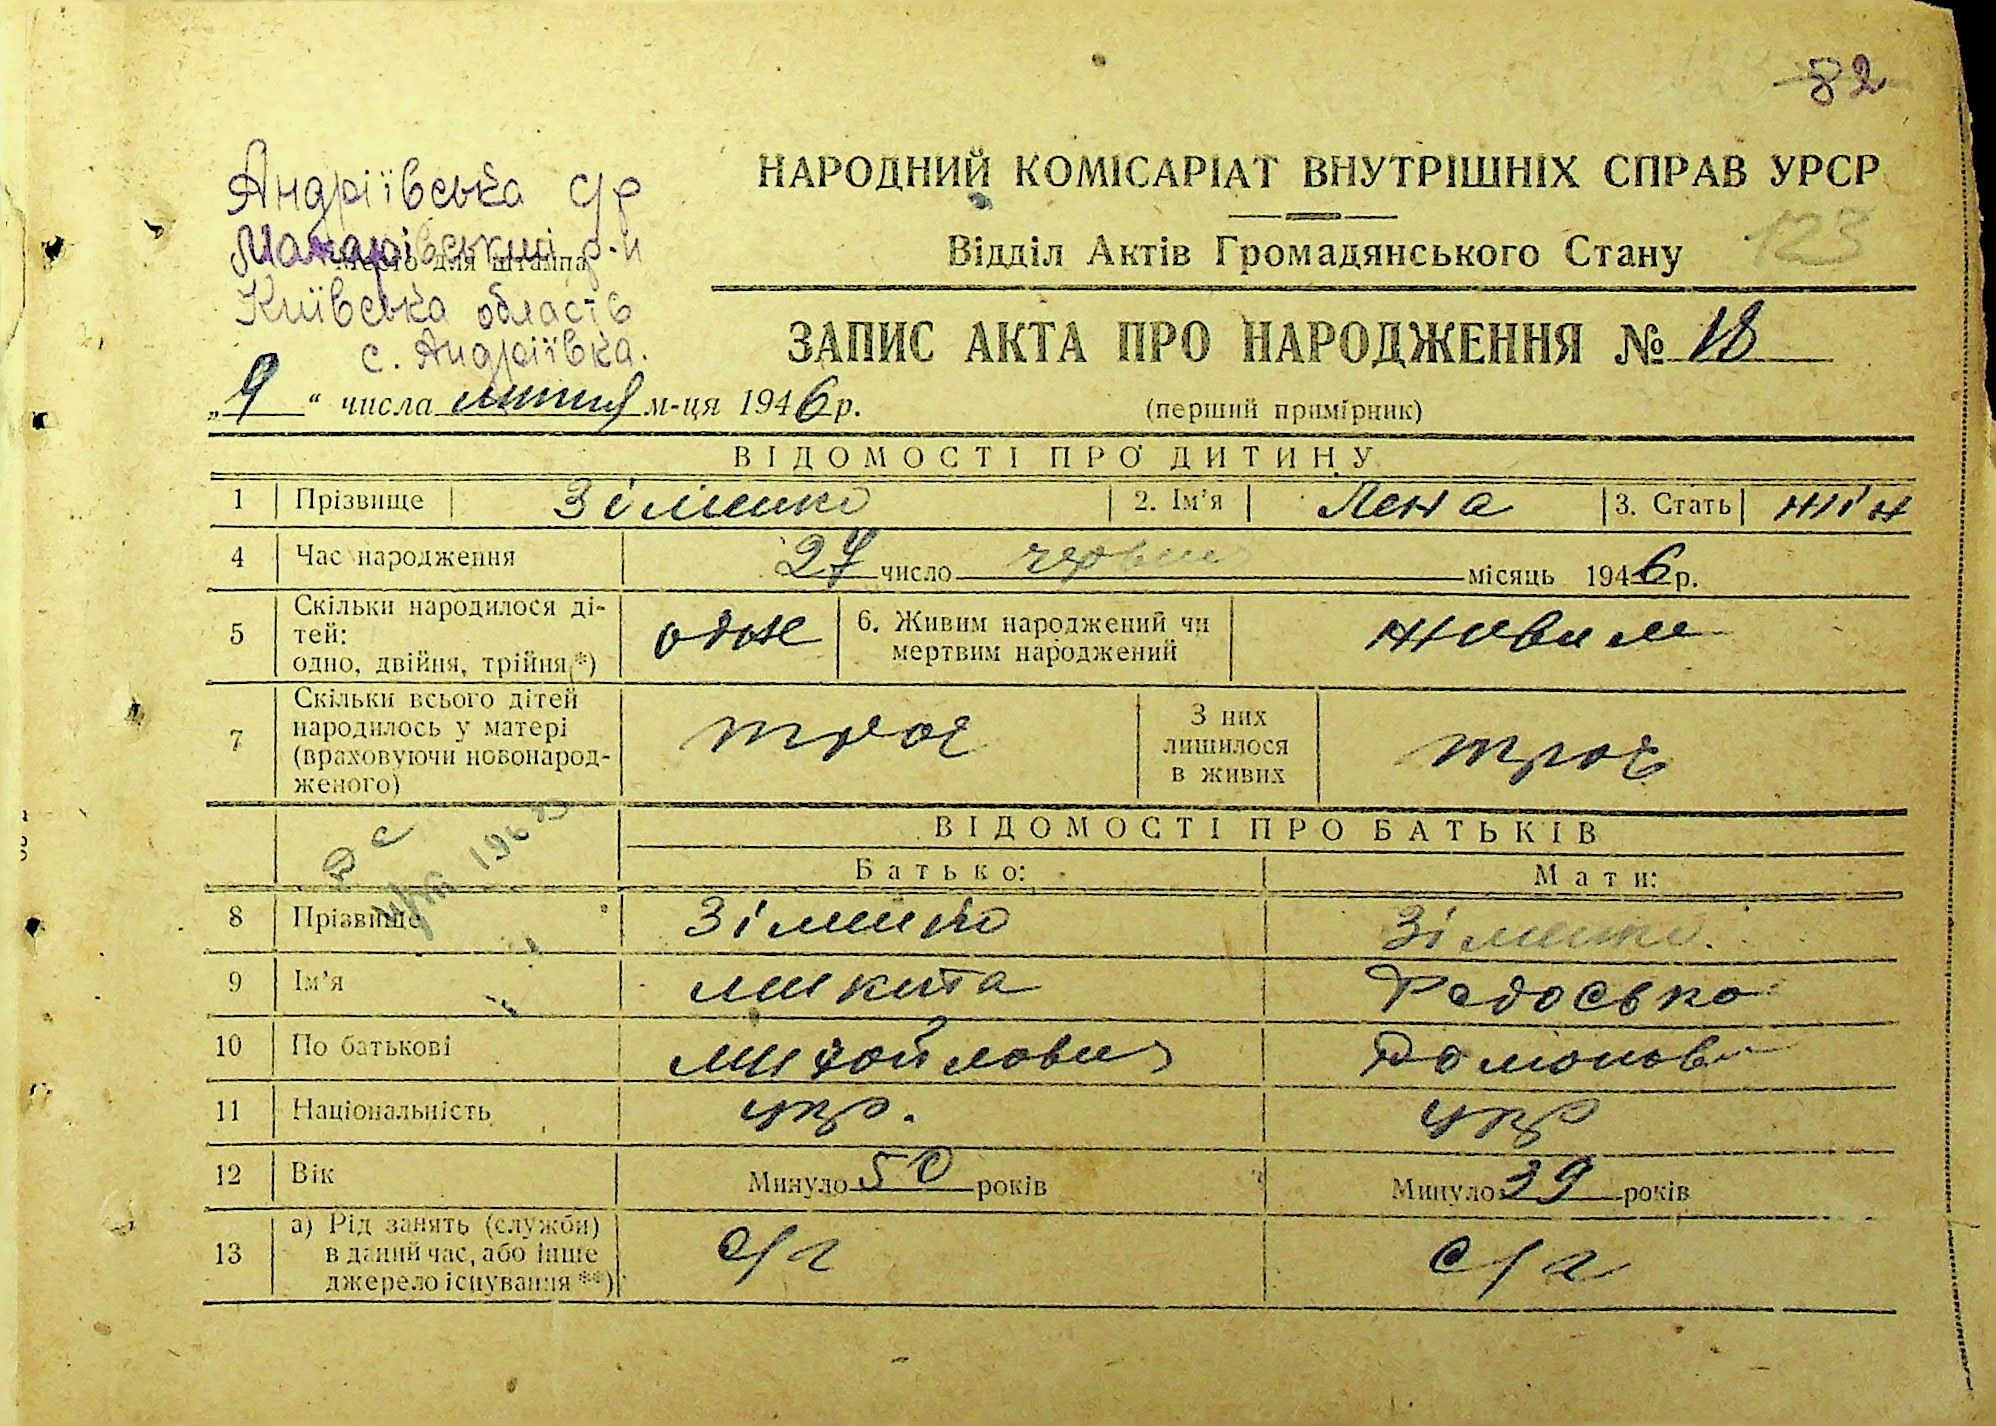 82
Андріївська с/р
Макарівський р-н
Місто для штампа
Київська область
с. Андріївка.
НАРОДНИЙ КОМІСАРІАТ ВНУТРІШНІХ СПРАВ УРСР
Відділ Актів Громадянського Стану
123
ЗАПИС АКТА ПРО НАРОДЖЕННЯ № 18
„9“ числа липня м-ця 1946 р.
(перший примірник)
ВІДОМОСТІ ПРО ДИТИНУ
1 Прізвище Зіменко 2. Ім'я Лена 3. Стать жін
4 Час народження 27 число червня місяць 1946 р.
5 Скільки народилося ді-
тей:
одно, двійня, трійня *) одне
6. Живим народжений чи
мертвим народжений живим
7 Скільки всього дітей
народилось у матері
(враховуючи новонарод-
женого) троє
З них
лишилося
в живих троє
ВІДОМОСТІ ПРО БАТЬКІВ
Батько: Мати:
8 Прізвище Зіменко Зіменко
9 Ім'я Микита Федоська
10 По батькові Михайлович
11 Національність укр. укр
12 Вік Минуло 50 років Минуло 39 років
13 а) Рід занять (служби)
в даний час, або інше
джерело існування **) с/г с/г